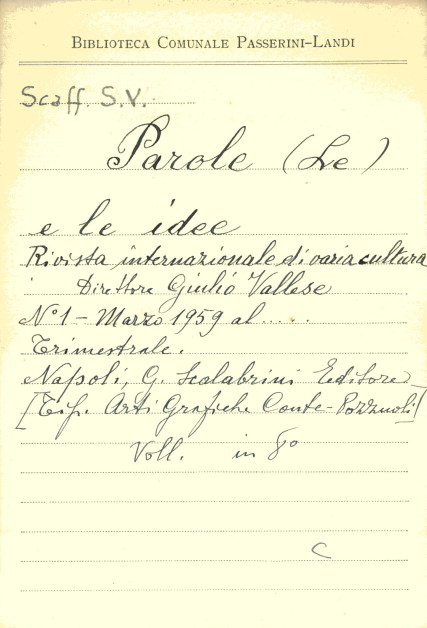 BIBLIOTECA COMUNALE PASSERINI-LANDI
Scaff. S.V.
Parole (Le)
e le idee
Rivista internazionale di varia cultura
Direttore Giulio Vallese
N° 1 - Marzo 1959 al .....
Trimestrale.
Napoli, G. Scalabrini Editore
[Tip. Arti Grafiche Conte-Pozzuoli]
Voll. in 8°
C